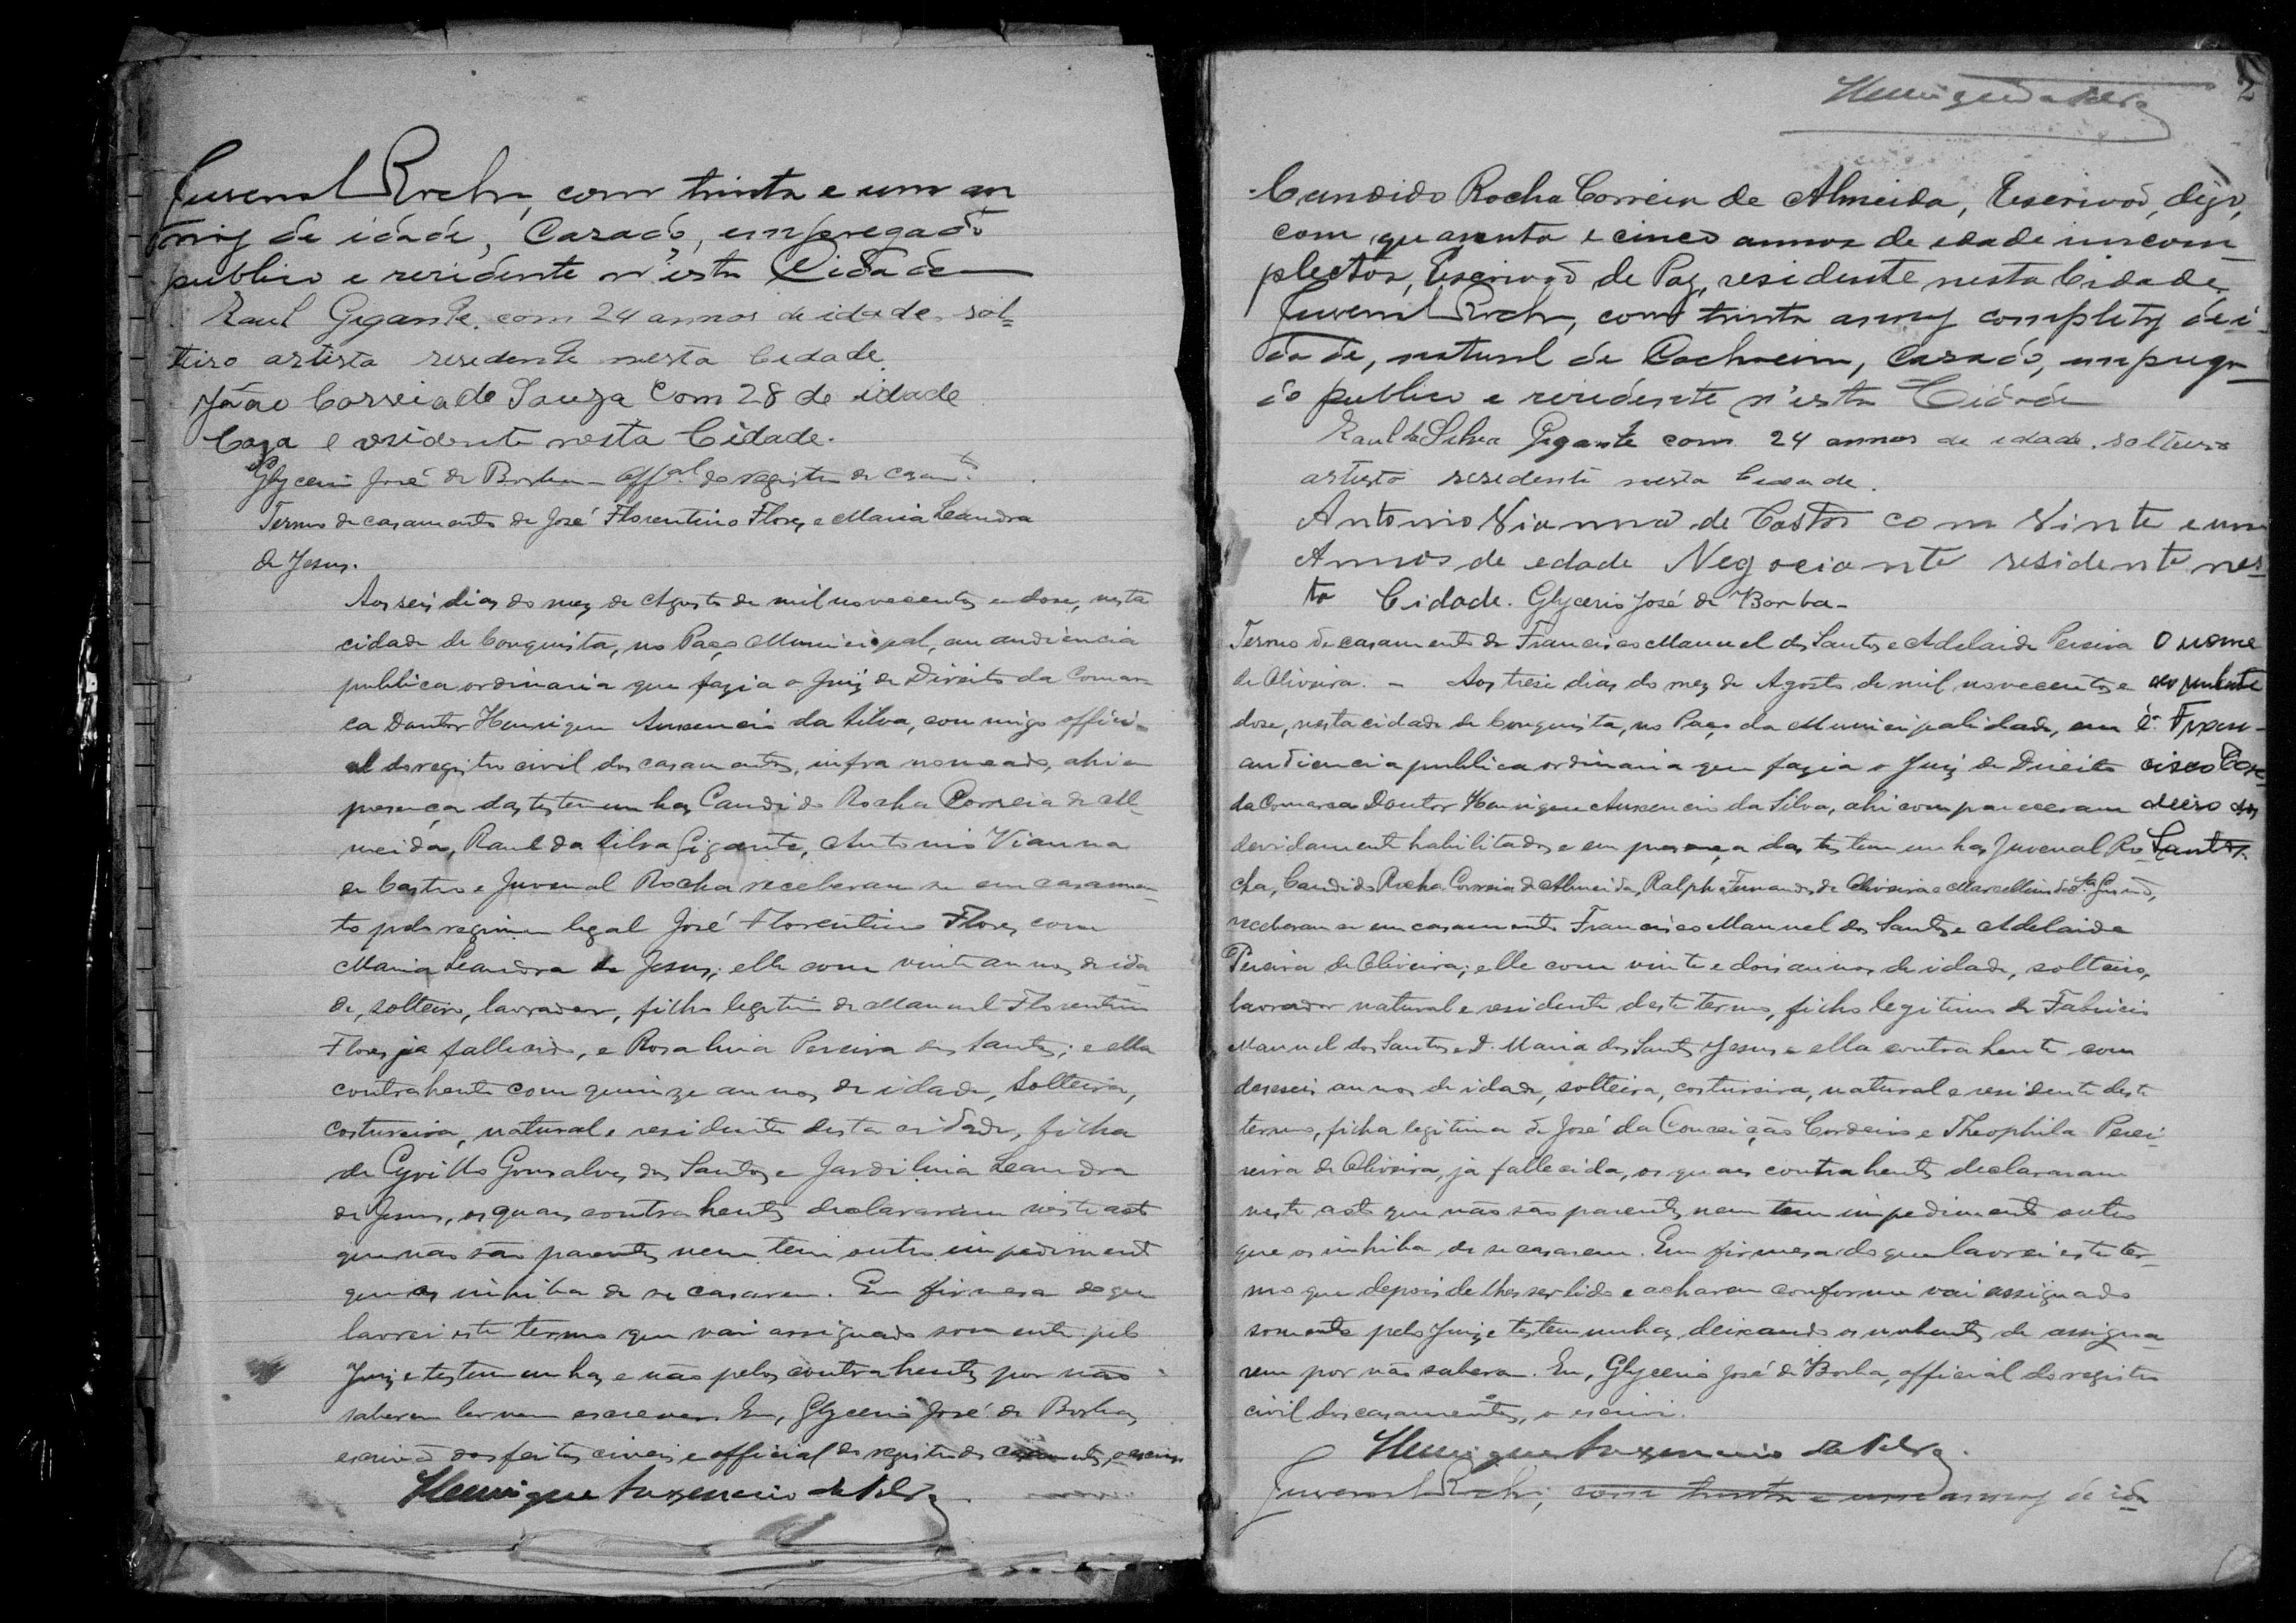 Juvenal Rocha, com trinta e um an
nos de idade, Casado, empregado
publico e residente n'esta Cidade
Raul Gigante. com 24 annos de idade. sol=
teiro artista residente nesta Cidade.
João Correia de Souza Com 28 de idade
Caza e residente nesta Cidade.
Glycerio José de Borba offal. do registro de casamtos.
Termo de casamento de José Florentino Flores e Maria Leandra
de Jesus.
Aos seis dias do mez de Agosto de mil novecentos e dose, nesta
cidade de Conquista, no Paço Municipal, em audiencia
publica ordinaria que fazia o Juiz de Direito da Comar
ca Doutor Henrique Auxencio da Silva, commigo offici-
al do registro civil dos casamentos, infra nomeado, ahi em
presença das testemunhas Candido Rocha Correia de Al-
meida, Raul da Silva Gigante, Antonio Vianna
de Castro e Juvenal Rocha receberam se em casamen-
to pelo regimen legal José Florentino Flores com
Maria Leandra de Jesus; elle com vinte annos de ida
de, solteiro, lavrador, filho legitimo de Manuel Florentino
Flores já fallecido, e Rosalina Pereira dos Santos; e ella
contrahente com quinze annos de idade, Solteira,
costureira, natural e residente desta cidade, filha
de Cyrillo Gonsalves dos Santos e Jardilina Leandra
de Jesus, os quaes contrahentes declararam neste acto
que não são parentes nem tem outro impedimento
que os inhiba de se casarem. Em firmesa do que
lavrei este termo que vai assignado somente pelo
Juiz e testemunhas e não pelos contrahentes por não
saberem ler nem escrever. Eu, Glycerio José de Borba,
escrivão dos feitos civeis e official do registro dos casamentos, o escrevi
Henrique Auxencio da Silva.
Henrique da Silva
2
Candido Rocha Correia de Almeida, Escrivão, digo,
com quarenta e cinco annos de edade incom-
plectos, Escrivão de Paz, residente nesta Cidade.
Juvenal Rocha, com trinta annos completos de i-
dade, natural de Cachoeira, Casado, emprega-
do publico e residente n'esta Cidade
Raul da Silva Gigante com 24 annos de edade. solteiro
artista residente nesta Cidade.
Antonio Vianna de Castro com Vinte e um
Annos de edade Negociante residente nes-
ta Cidade. Glycerio José de Borba-
Termo de casamento de Francisco Manuel dos Santos e Adelaide Pereira
de Oliveira. - Aos trese dias do mez de Agosto de mil novecentos e
dose, nesta cidade de Conquista, no Paço da Municipalidade, em
audiencia publica ordinaria que fazia o Juiz de Direito
da Comarca Doutor Henrique Auxencio da Silva, ahi compareceram
devidamente habilitados e em presença das testemunhas Juvenal Ro-
cha, Candido Rocha Correia de Almeida, Ralph Fernandes de Oliveira e Marcellino
receberam se em casamento Francisco Manuel dos Santos e Adelaide
Pereira de Oliveira; elle com vinte e dois annos de idade, solteiro,
lavrador natural e residente deste termo, filho legitimo de Fabricio
Manuel dos Santos e D. Maria dos Santos Jesus e ella contrahente com
deseseis annos de idade, solteira, costureira, natural e residente deste
termo, filha legitima de José da Conceição Cordeiro e Theophila Perei-
reira de Oliveira, já fallecida, os quaes contrahentes declararam
neste acto que não são parentes nem tem impedimento outro
que os inhiba de se casarem. Em firmesa do que lavrei este ter-
mo que depois de lhes ser lido e acharem conforme vai assignado
somente pelo Juiz e testemunhas, deixando os nubentes de assigna-
rem por não saberem. Eu, Glycerio José de Borba, official do registro
civil dos casamentos, o escrevi.
Henrique Auxencio da Silva.
Juvenal Rocha, com trinta e um annos de ida
O nome
do nubente
é: Fran-
cisco Cor
deiro dos
Santos.